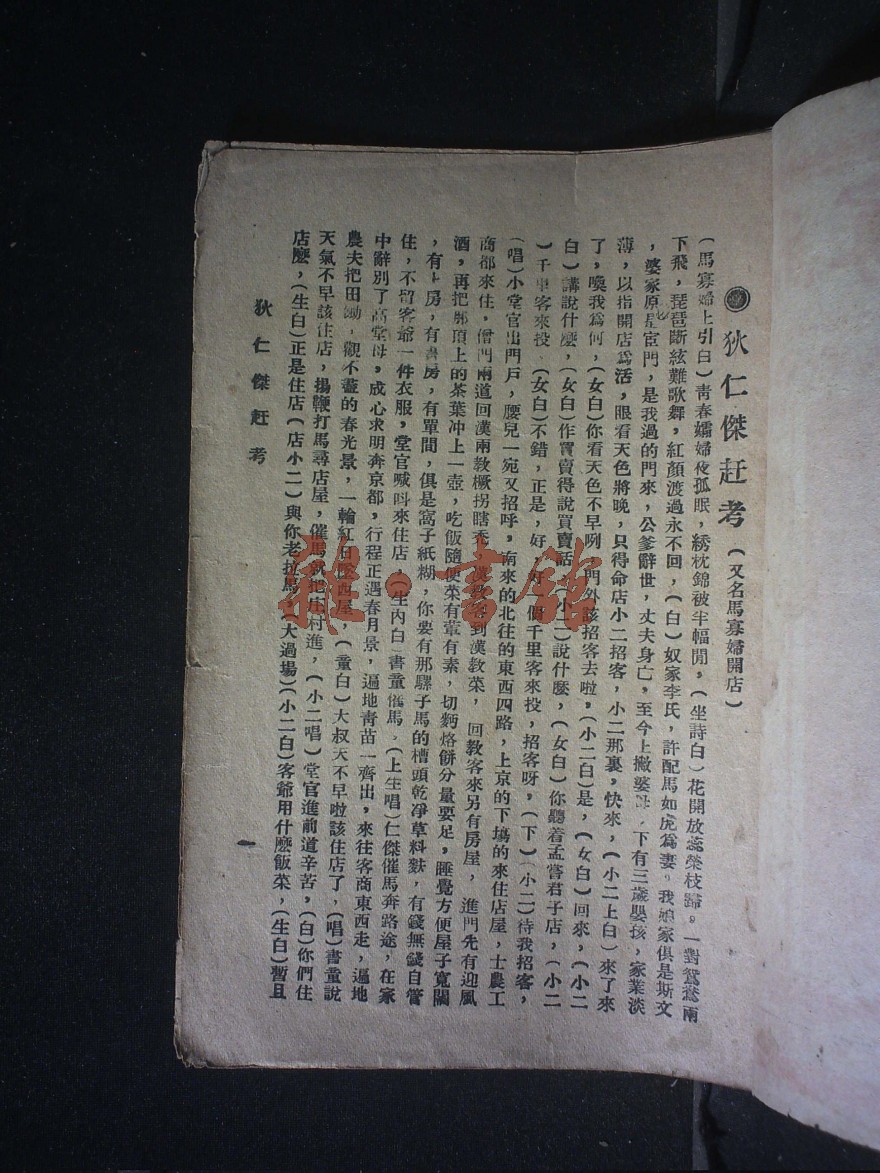 狄仁傑赶考（又名馬寡婦開店）
（馬寡婦上引白）青春孀婦夜孤眠，綉枕錦被半幅閒，（坐詩白）花開放蕊榮枝歸。一對鴛鴦兩
下飛，琵琶斷絃難歌舞，紅顏渡過永不回，（白）奴家李氏，許配馬如虎爲妻。我娘家俱是斯文
，婆家原是宦門，是我過的門來，公爹辭世，丈夫身亡，至今上撇婆母，下有三歲嬰孩，家業淡
薄，以指開店爲活，眼看天色將晚，只得命店小二招客，小二那裏，快來，（小二上白）來了來
了，喚我爲何，（女白）你看天色不早咧，門外該招客去啦，（小二白）是，（女白）回來，（小二
白）講說什麼，（女白）作買賣得說買賣話，（小二）說什麼，（女白）你聽着孟嘗君子店，（小二
）千里客來投，（女白）不錯，正是，好，好，個千里客來投，招客呀，（下）（小二）待我招客，
（唱）小堂官出門戶，腰兒一宛又招呼，南來的北往的東西四路，上京的下塲的來住店屋，士農工
商都來住，僧門兩道回漢兩教橛拐瞎禿，漢教客到漢教菜，回教客來另有房屋，進門先有迎風
酒，再把那頂上的茶葉冲上一壺，吃飯隨便菜有葷有素，切麪烙餅分量要足，睡覺方便屋子寬闊
，有上房，有書房，有單間，俱是窩子紙糊，你要有那騾子馬的槽頭乾凈草料麩，有錢無錢自管
住，不留客爺一件衣服，堂官喊呌來住店，（生內白）書童催馬，（上生唱）仁傑催馬奔路途，在家
中辭別了高堂母，成心求明奔京都，行程正遇春月景，遍地靑苗一齊出，來往客商東西走，遍地
農夫把田鋤，觀不盡的春光景，一輪紅日墜西屋，（童白）大叔天不早啦該住店了，（唱）書童說
天氣不早該住店，揚鞭打馬尋店屋，催馬就把庄村進，（小二唱）堂官進前道辛苦，（白）你們住
店麼，（生白）正是住店（店小二）與你老拉馬，（大過場）（小二白）客爺用什麽飯菜，（生白）暫且
狄仁傑赶考
一
雅書館